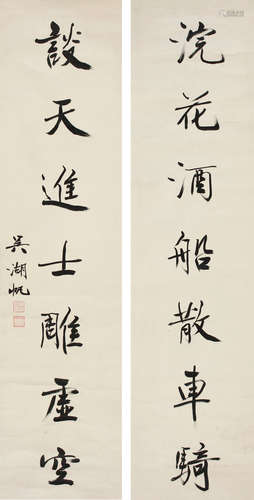 浣花酒船散車騎
談天進士雕虛空
吳湖帆